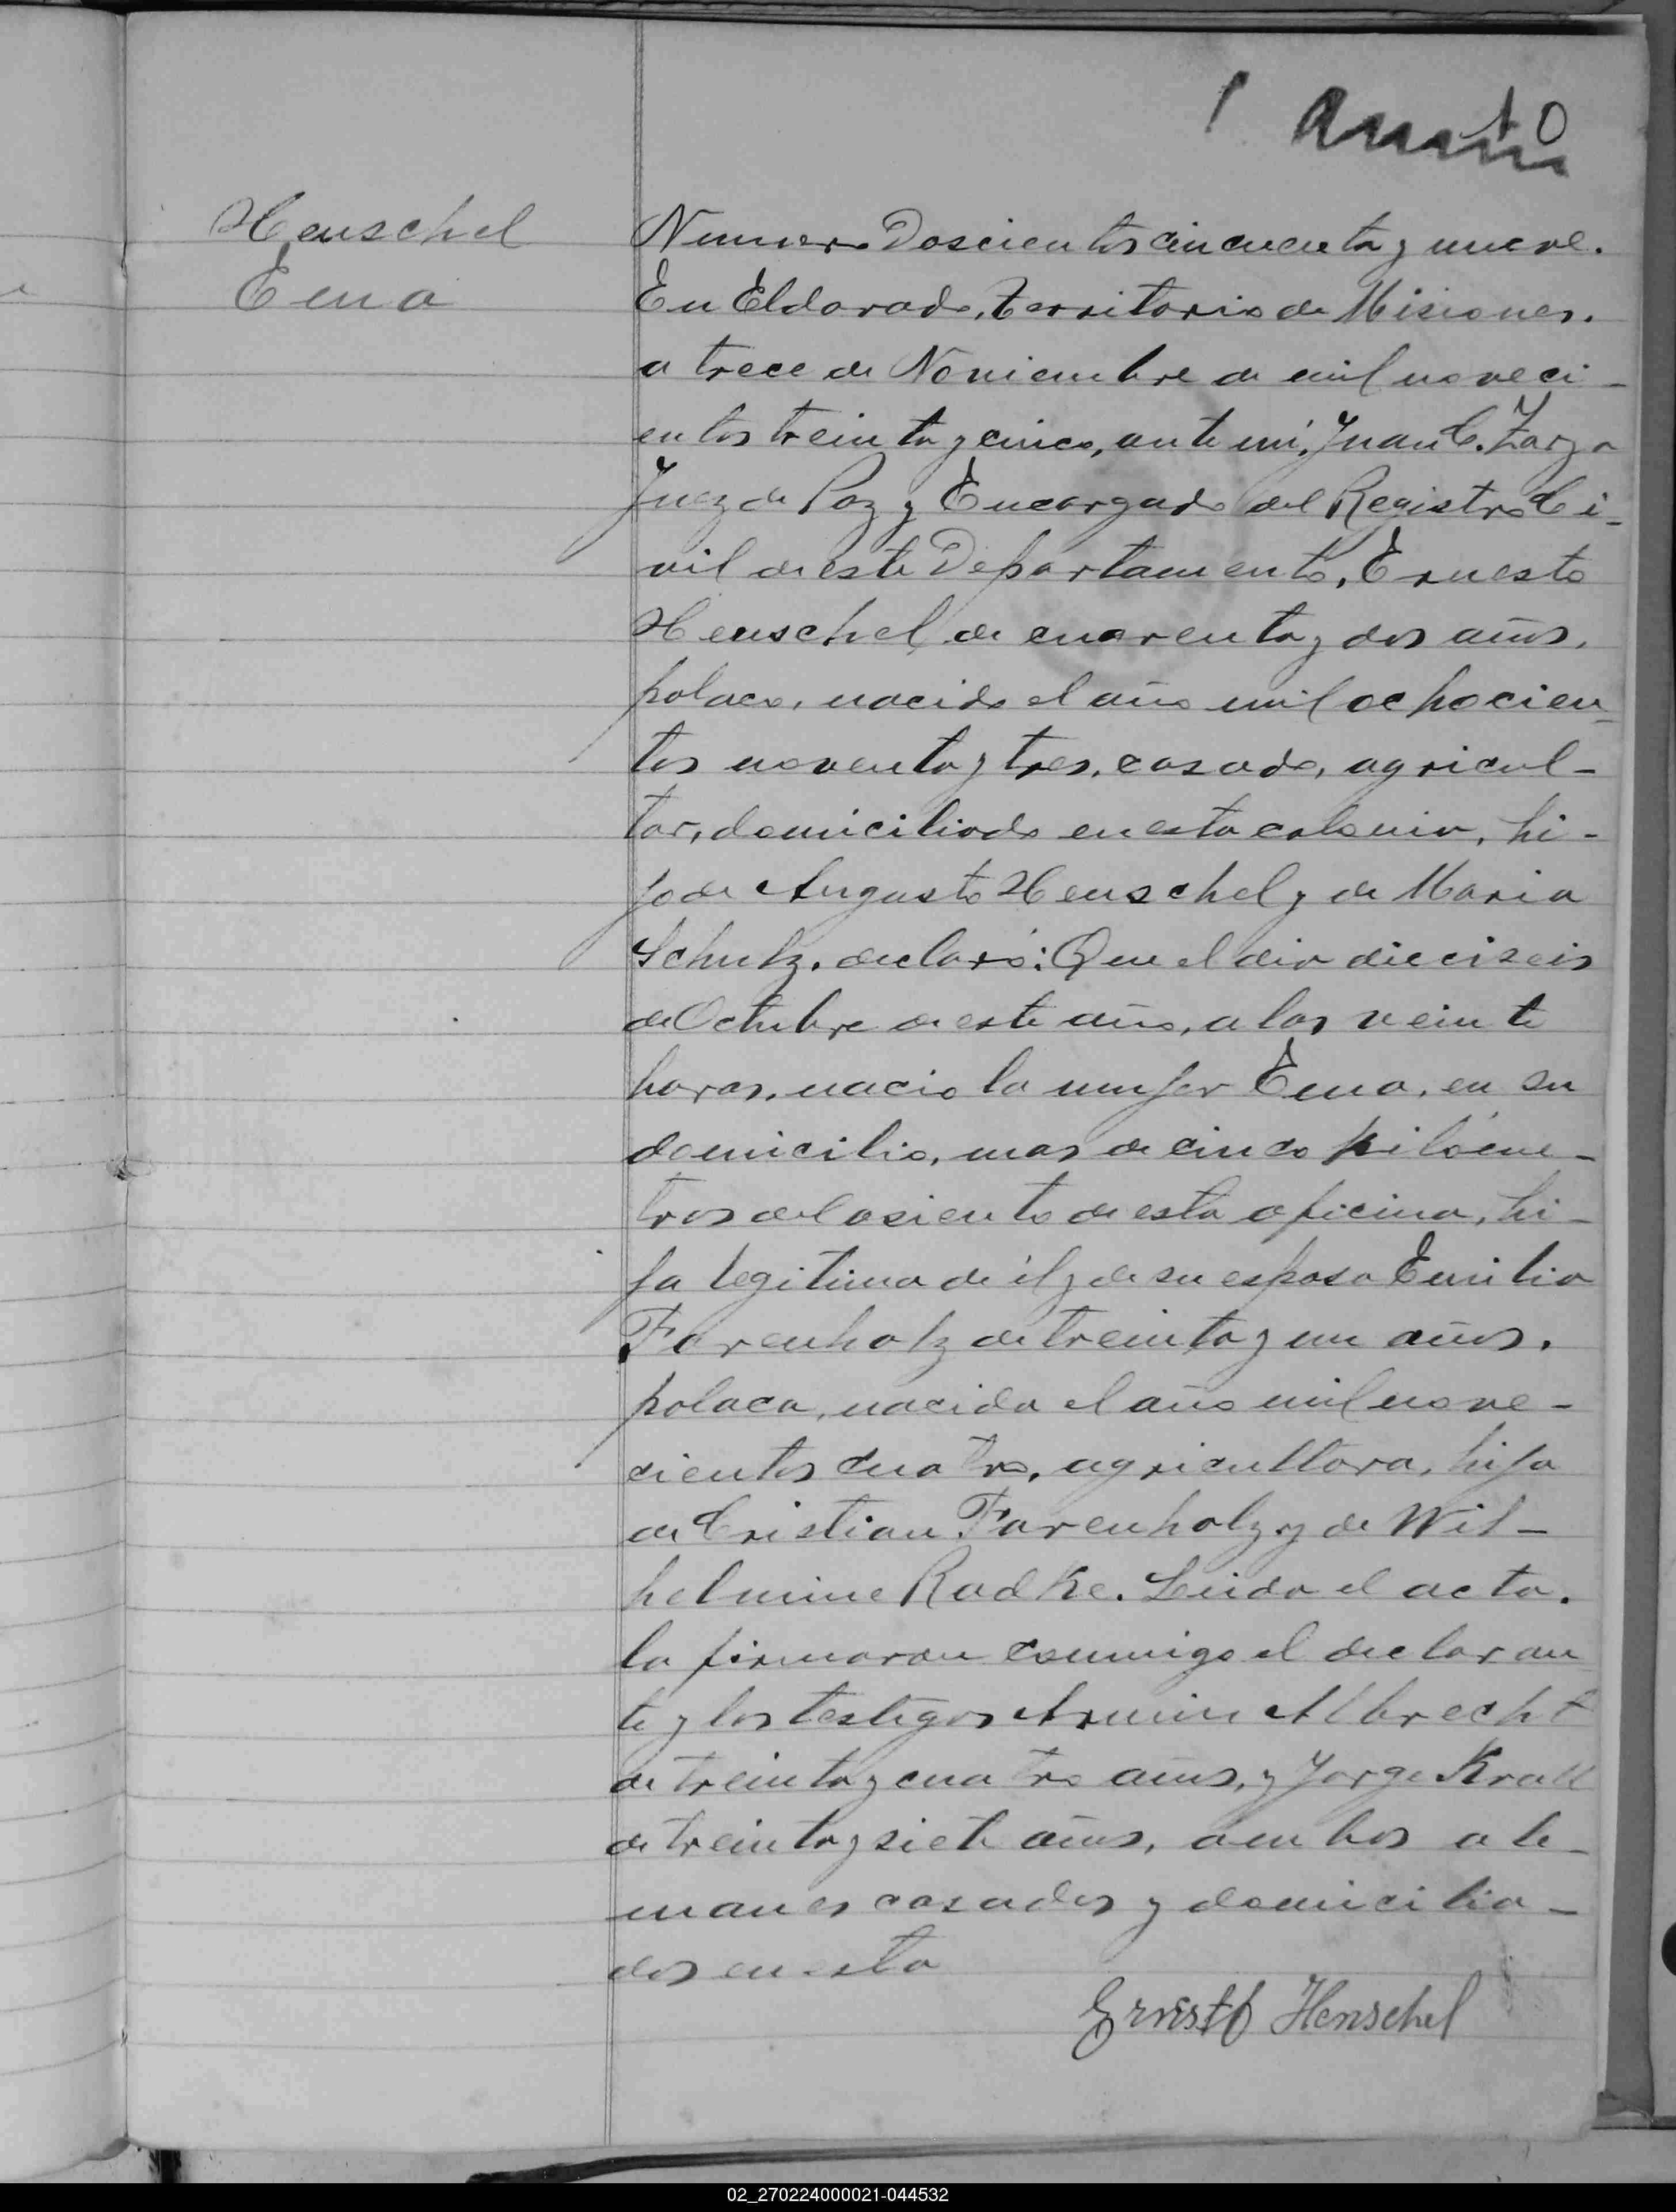 Henschel
Ema
Numero Doscientos cincuenta y nueve.
En Eldorado, territorio de Misiones.
a trece de Noviembre de mil noveci-
entos treinta y cinco, ante mi, Juan C. Zarza
Juez de Paz y Encargado del Registro Ci-
vil de este Departamento, Ernesto
Henschel de cuarenta y dos años,
polaco, nacido el año mil ochocien-
tos noventa y tres, casado, agricul-
tor, domiciliado en esta colonia, hi-
jo de Augusto Henschel y de Maria
Schulz, declaró: Que el dia dieciseis
de Octubre de este año, a las veinte
horas, nacio la mujer Ema, en su
domicilio, mas de cinco kilóme-
tros del asiento de esta oficina, hi-
ja legitima de él y de su esposa Emilia
Farenholz de treinta y un años,
polaca, nacida el año mil nove-
cientos cuatro, agricultora, hija
de Cristian Farenholz y de Wil-
helmine Radke. Leida el acta,
la firmaron conmigo el declaran
te y los testigos Armin Albrecht
de treinta y cuatro años, y Jorge Krall
de treinta y siete años, ambos ale-
manes casados y domicilia-
dos en esta
Ernst Henschel
02_270224000021-044532